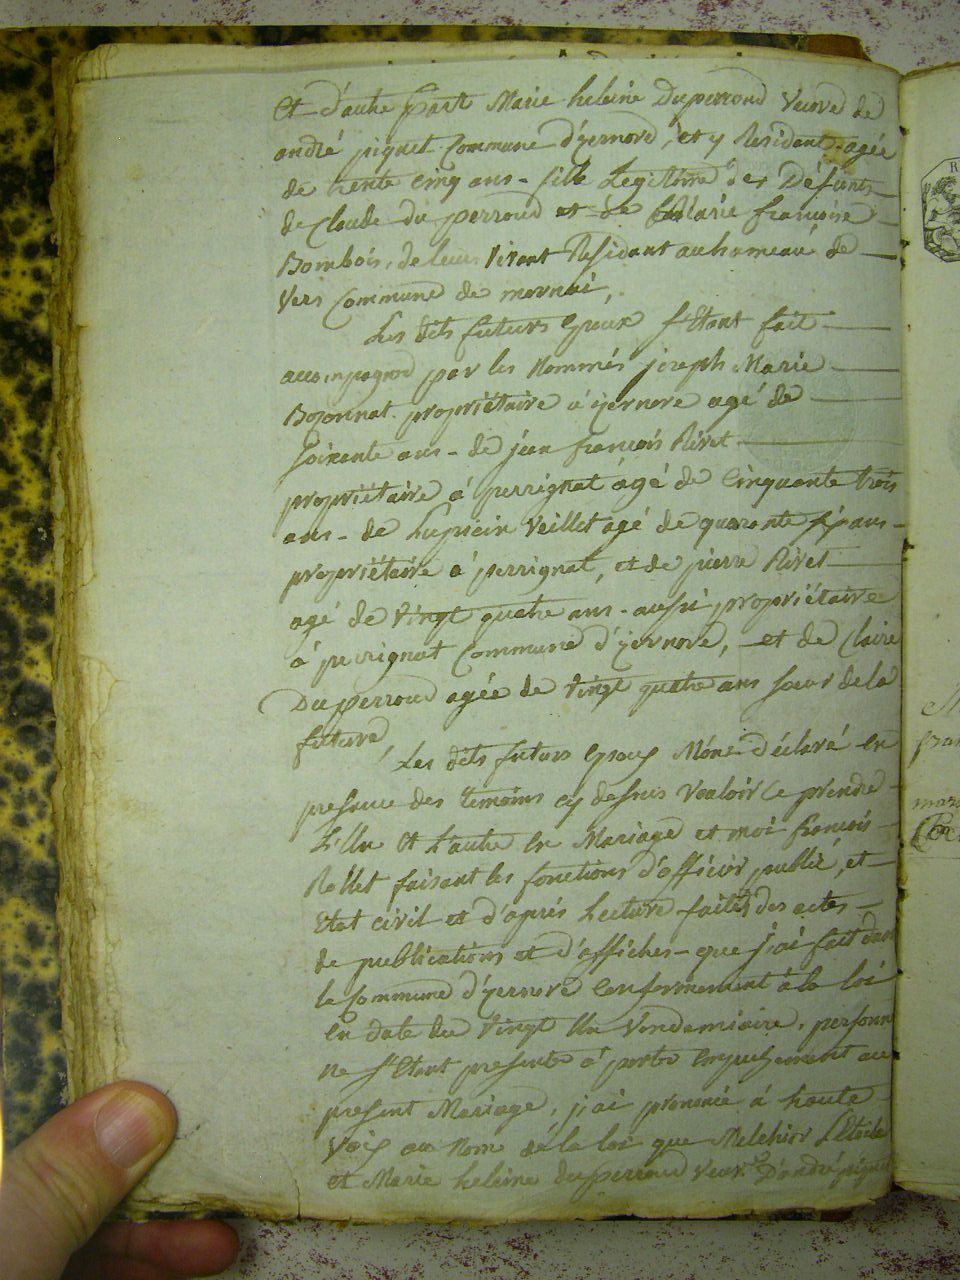 Et d'autre part Marie heleine Duperroud veuve de
andré piquet Commune d'yernore, et y Residant agée
de trente cinq ans - fille Legitime des Défunts
de Claude du perroud et de Marie françoise
Bombois, de leurs vivant Residant au hameau de
Vers Commune de mornai,
Les dits futurs Epoux s'Etant fait
accompagné par les Nommés joseph Marie
Bozonnat propriétaire a yernore agé de
soixante ans - de jean françois Rivet
propriétaire á perrignat ágé de Cinquante trois
ans - de Lupicin Veillet agé de quarante sept ans
propriétaire á perrignat, et de pierre Rivet
agé de Vingt quatre ans - aussi propriétaire
á perrignat Commune d'yernore, et de Claire
Duperroud agée de Vingt quatre ans sœur de la
future
Les dits futurs Epoux M'ont Déclaré En
presence des temoins cy dessus Vouloir Ce prendre
L'Un Et L'autre En Mariage et moi françois
Rollet faisant les fonctions d'officier public, et
Etat civil et d'aprés Lecture faites des actes
de publications et d'affiches - que j'ai fait dans
la Commune d'yernore Conformement á la loi
En date du Vingt Un Vendemiaire, personn
ne s'Etant presenté á porté Empechement au
present Mariage, j'ai prononcé á haute
Voix au Nom de la loi que Melchior L'Etoile
et Marie heleine duperroud veuve D'andré piquet